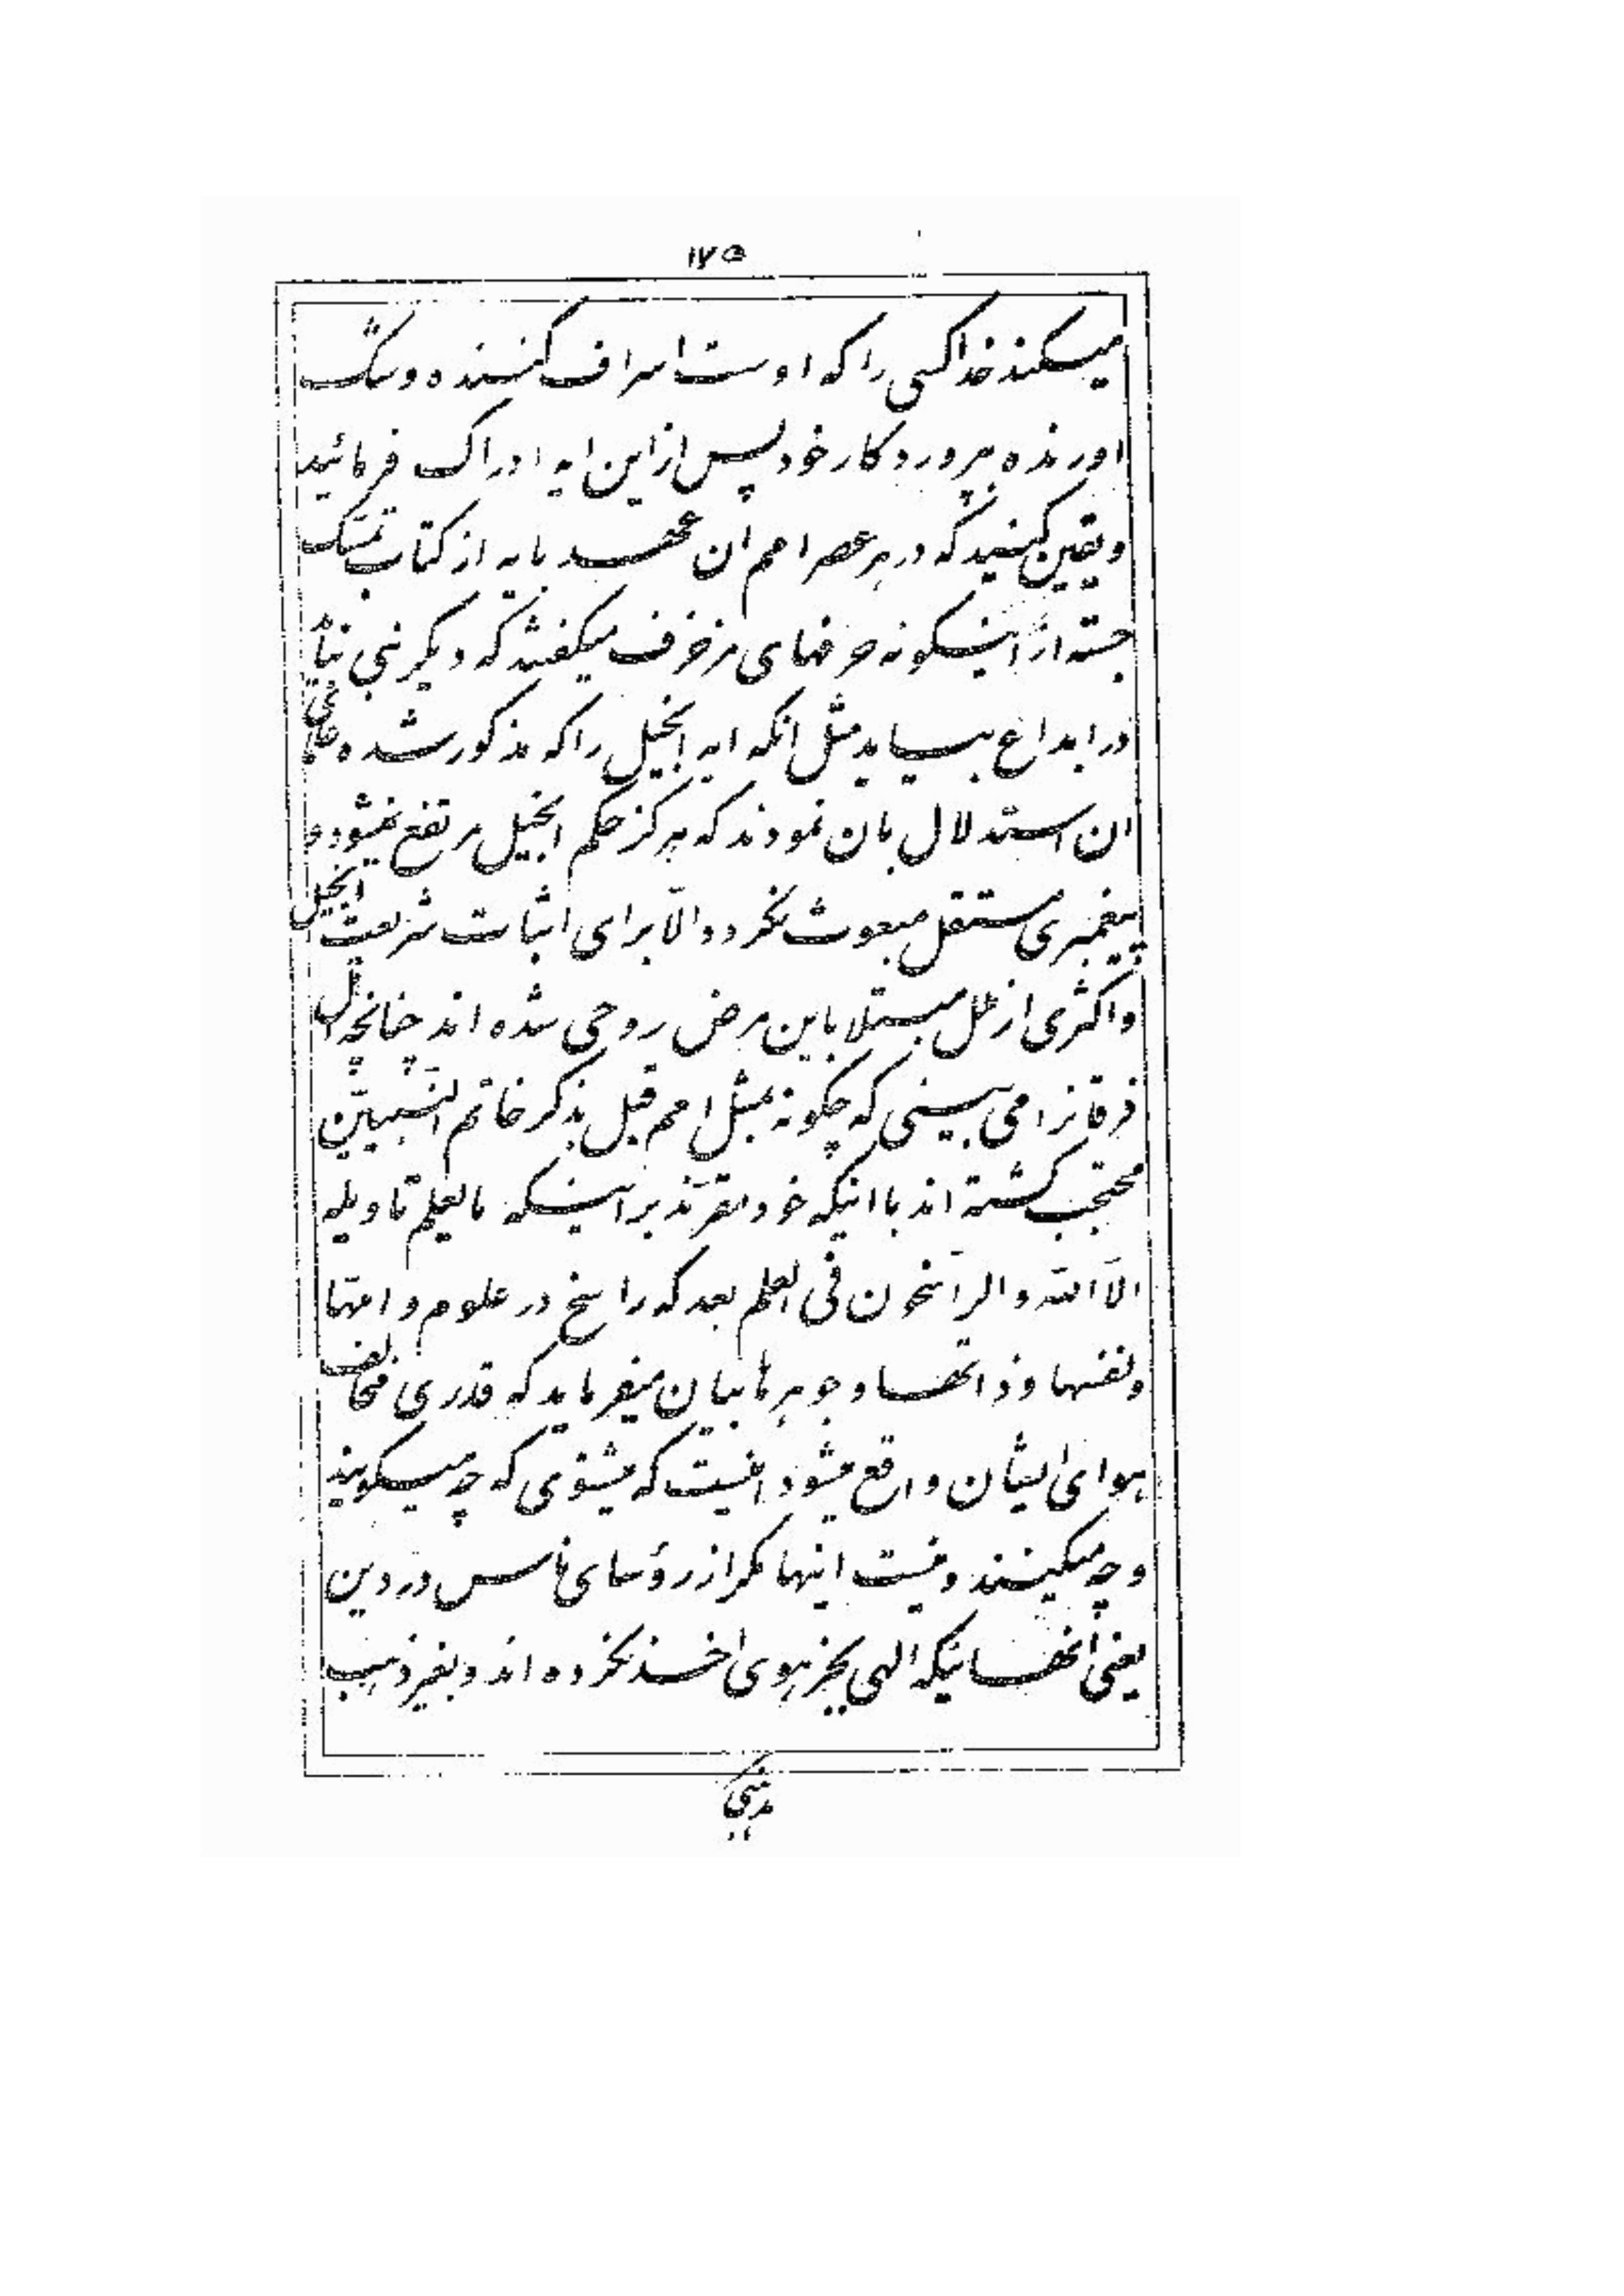 ۱۷۵
میکند خدا کسی را که اوست اسراف کننده و شک
اورنده بپروردکار خود پس از این ایه ادراک فرمائید
و یقین کنید که در هر عصر امم ان عهد بایه از کتاب تمسک
جسته از اینکونه حرفهای مزخرف میکفتند که دیکر نبی نباید
در ابداع بیاید مثل انکه ایه انجیل را که مذکور شد علمای
ان استدلال بان نمودند که هرکز حکم انجیل مرتفع نمیشود و
پیغمبری مستقل مبعوث نکردد الّا برای اثبات شریعت انجیل
و اکثری از ملل مبتلا باین مرض روحی شده اند چنانچه اهل
فرقانرا می بینی که چکونه بمثل امم قبل بذکر خاتم النّبیّین
محتجب کشته اند با اینکه خود مقرّند بر اینکه ما یعلم تاویله
الّا اللّه و الرّاسخون فی العلم بعد که راسخ در علوم و امّها
و نفسها و ذاتها و جوهرها بیان میفرماید که قدری مخالف
هوای ایشان واقع میشود اینست که میشنوی که چه میکویند
و چه میکنند و نیست اینها مکر از رؤسای ناس در دین
یعنی انهائیکه الهی بجز هوی اخذ نکرده اند و بغیر ذهب
مذهبی